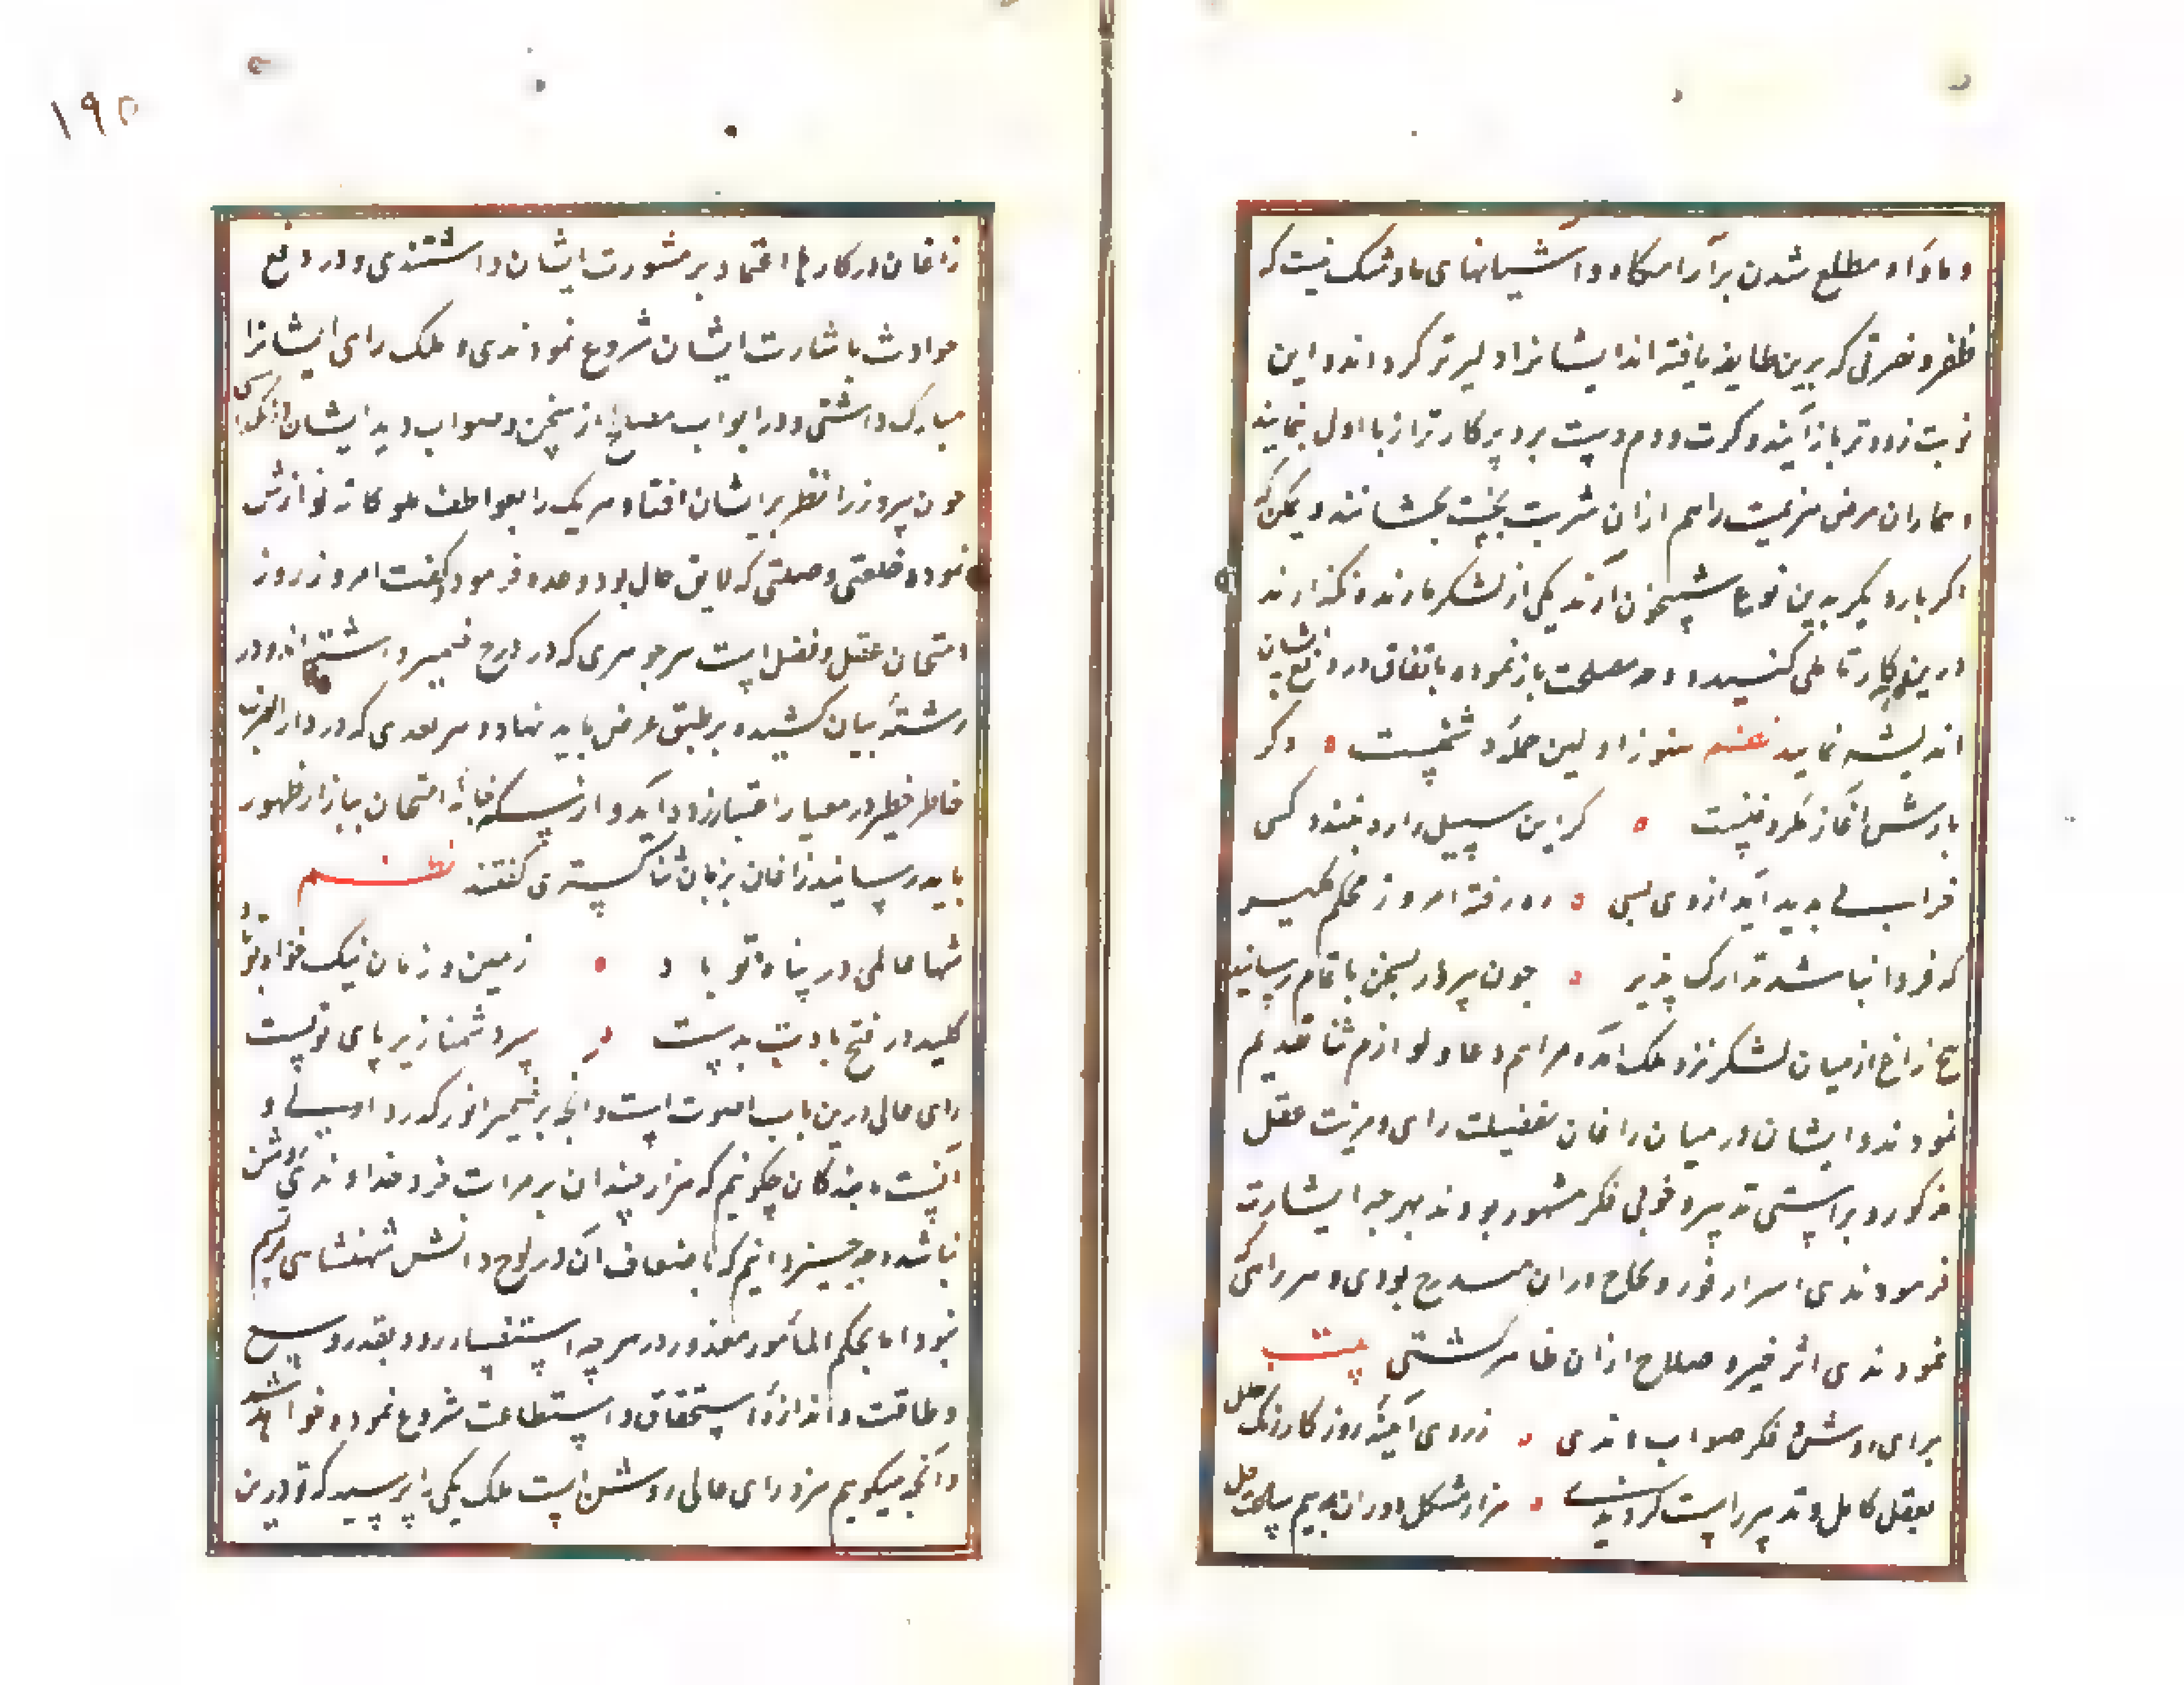 و ماوا و مطلع شدن بر آرامکاه و آشیانهای ما و شک نیست که
ظفر و نصرتی که برین طایفه یافته اند ایشانرا دلیرتر کردانده این
نوبت زودتر باز آیند و کرت دوم دست برد پرکارتر از بار اولی نمایند
و بیماران مرض هزیمت را هم ازان شربت نخست بچشانند و یمکن که
اکر بار دیکر بدین نوع شبیخون آرند یکی از لشکر ما زنده نکذارند
درین کار تاملی کنید و وجه مصلحت باز نموده باتفاق در دفع ایشان
اندیشه نمایید نظم هنوز اولین حمله دشمنست دکر
بارش آغاز مکر و فنیست که این سیل را ره نبندد کسی
خرابی بدید آید از وی بسی ره رفته امروز محکم بکیر
که فردا نباشد تدارک پذیر چون پیروز سخن باتمام رسانید
پنج زاغ از میان لشکر نزد ملک آمده مراسم دعا و لوازم ثنا تقدیم
نمودند و ایشان در میان زاغان بفضیلت رای و مزیت عقل
مذکور و براستی تدبیر و خوبی فکر مشهور بودند بهر چه اشارت
فرمودندی اسرار فوز و نجاح دران مندرج بودی و هر رای که
نمودندی اثر خیر و صلاح ازان ظاهر کشتی بیت
برای روشن و فکر صواب زدودندی ز روی آینه روزکار زنک خلل
بعقل کامل و تدبیر راست کردندی هزار مشکل دوران بنیم ساعت حل
۱۹۵
زاغان در کارها اعتماد بر مشورت ایشان داشتندی و در دفع
حوادث باشارت ایشان شروع نمودندی و ملک رای ایشانرا
مبارک داشتی و در ابواب مصالح از سخن و صواب دید ایشان نکذشتی
چون پیروز را نظر بر ایشان افتاد هر یک را بعواطف ملوکانه نوازش
نمود و خلعتی و صلتی که لایق حال بود وعده فرمود و کفت امروز روز
امتحان عقل و فضل است هر جوهری که در درج ضمیر داشته اند در
رشته بیان کشیده بر طبق عرض باید نهاد و هر نقدی که در دار الضرب
خاطر خطیر در معیار اعتبار زده آید و از سکه خانه امتحان ببازار ظهور
باید رسانید زاغان بزبان ثنا کستری کفتند نظم
شها عالمی در پناه تو باد زمین و زمان نیک خواه تو باد
کلید در فتح بادت بدست سر دشمنان زیر پای تو پست
رای عالی درین باب اصوب است و آنچه بر ضمیر انور کذرد اولی و
انسب بندکان چکونیم که هزار چندان بر مرات خرد خداوندی روشن
نباشد و چه چیز دانیم که باضعاف آن در لوح دانش شهنشاهی مرتسم
نبود اما بحکم المأمور معذور در هر چه استفسار رود بقدر وسع
و طاقت و اندازه استحقاق و استطاعت شروع نموده خواهد شد
و آنچه میکوییم نزد رای عالی روشن است ملک یکی را پرسید که تو درین